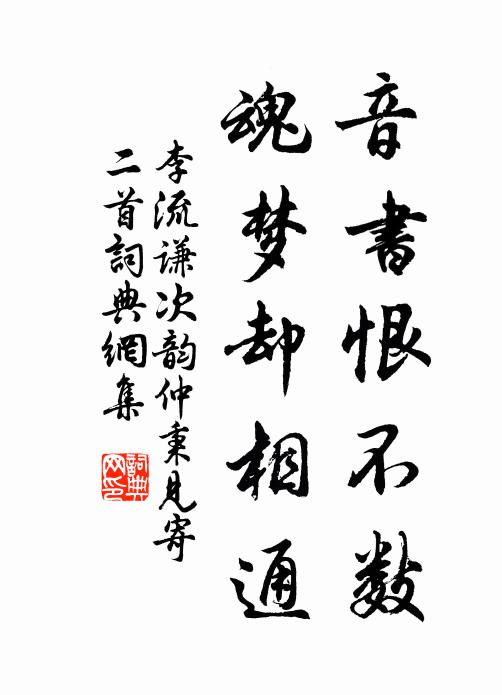 音書恨不数
魂梦却相通
李流谦次韵仲秉見寄
二首詞典網集
詞典
网印